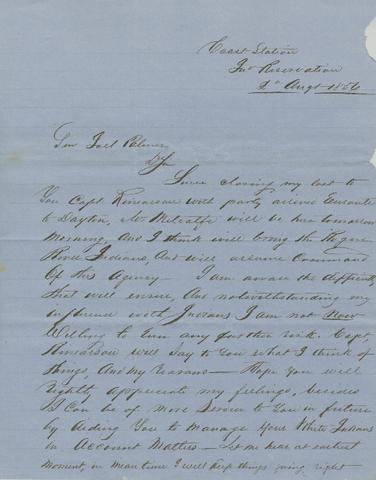 Coast Station
Ind Reservation
Augt 1856
Gen Joel Palmer
D Sir
Since closing my last to
You Capt Rinearson with party arived Enroute
to Dayton, Mr Metcalfe will be here tomorrow
Morning, And I think will bring the Rogue
River Indians, And will assume Command
Of this Agency — I am aware the difficulty
that will ensue, And notwithstanding my
influence with Indians I am not Now
Willing to run any further risk. Capt,
Rinearson will say to You what I think of
things, And My reasons — Hope You will
rightly appreciate my feelings, besides
I Can be of more Service to You in future
by Aiding You to Manage Your White Indians
in Account Matters — Let me hear at earliest
Moment, in mean time I will keep things going right